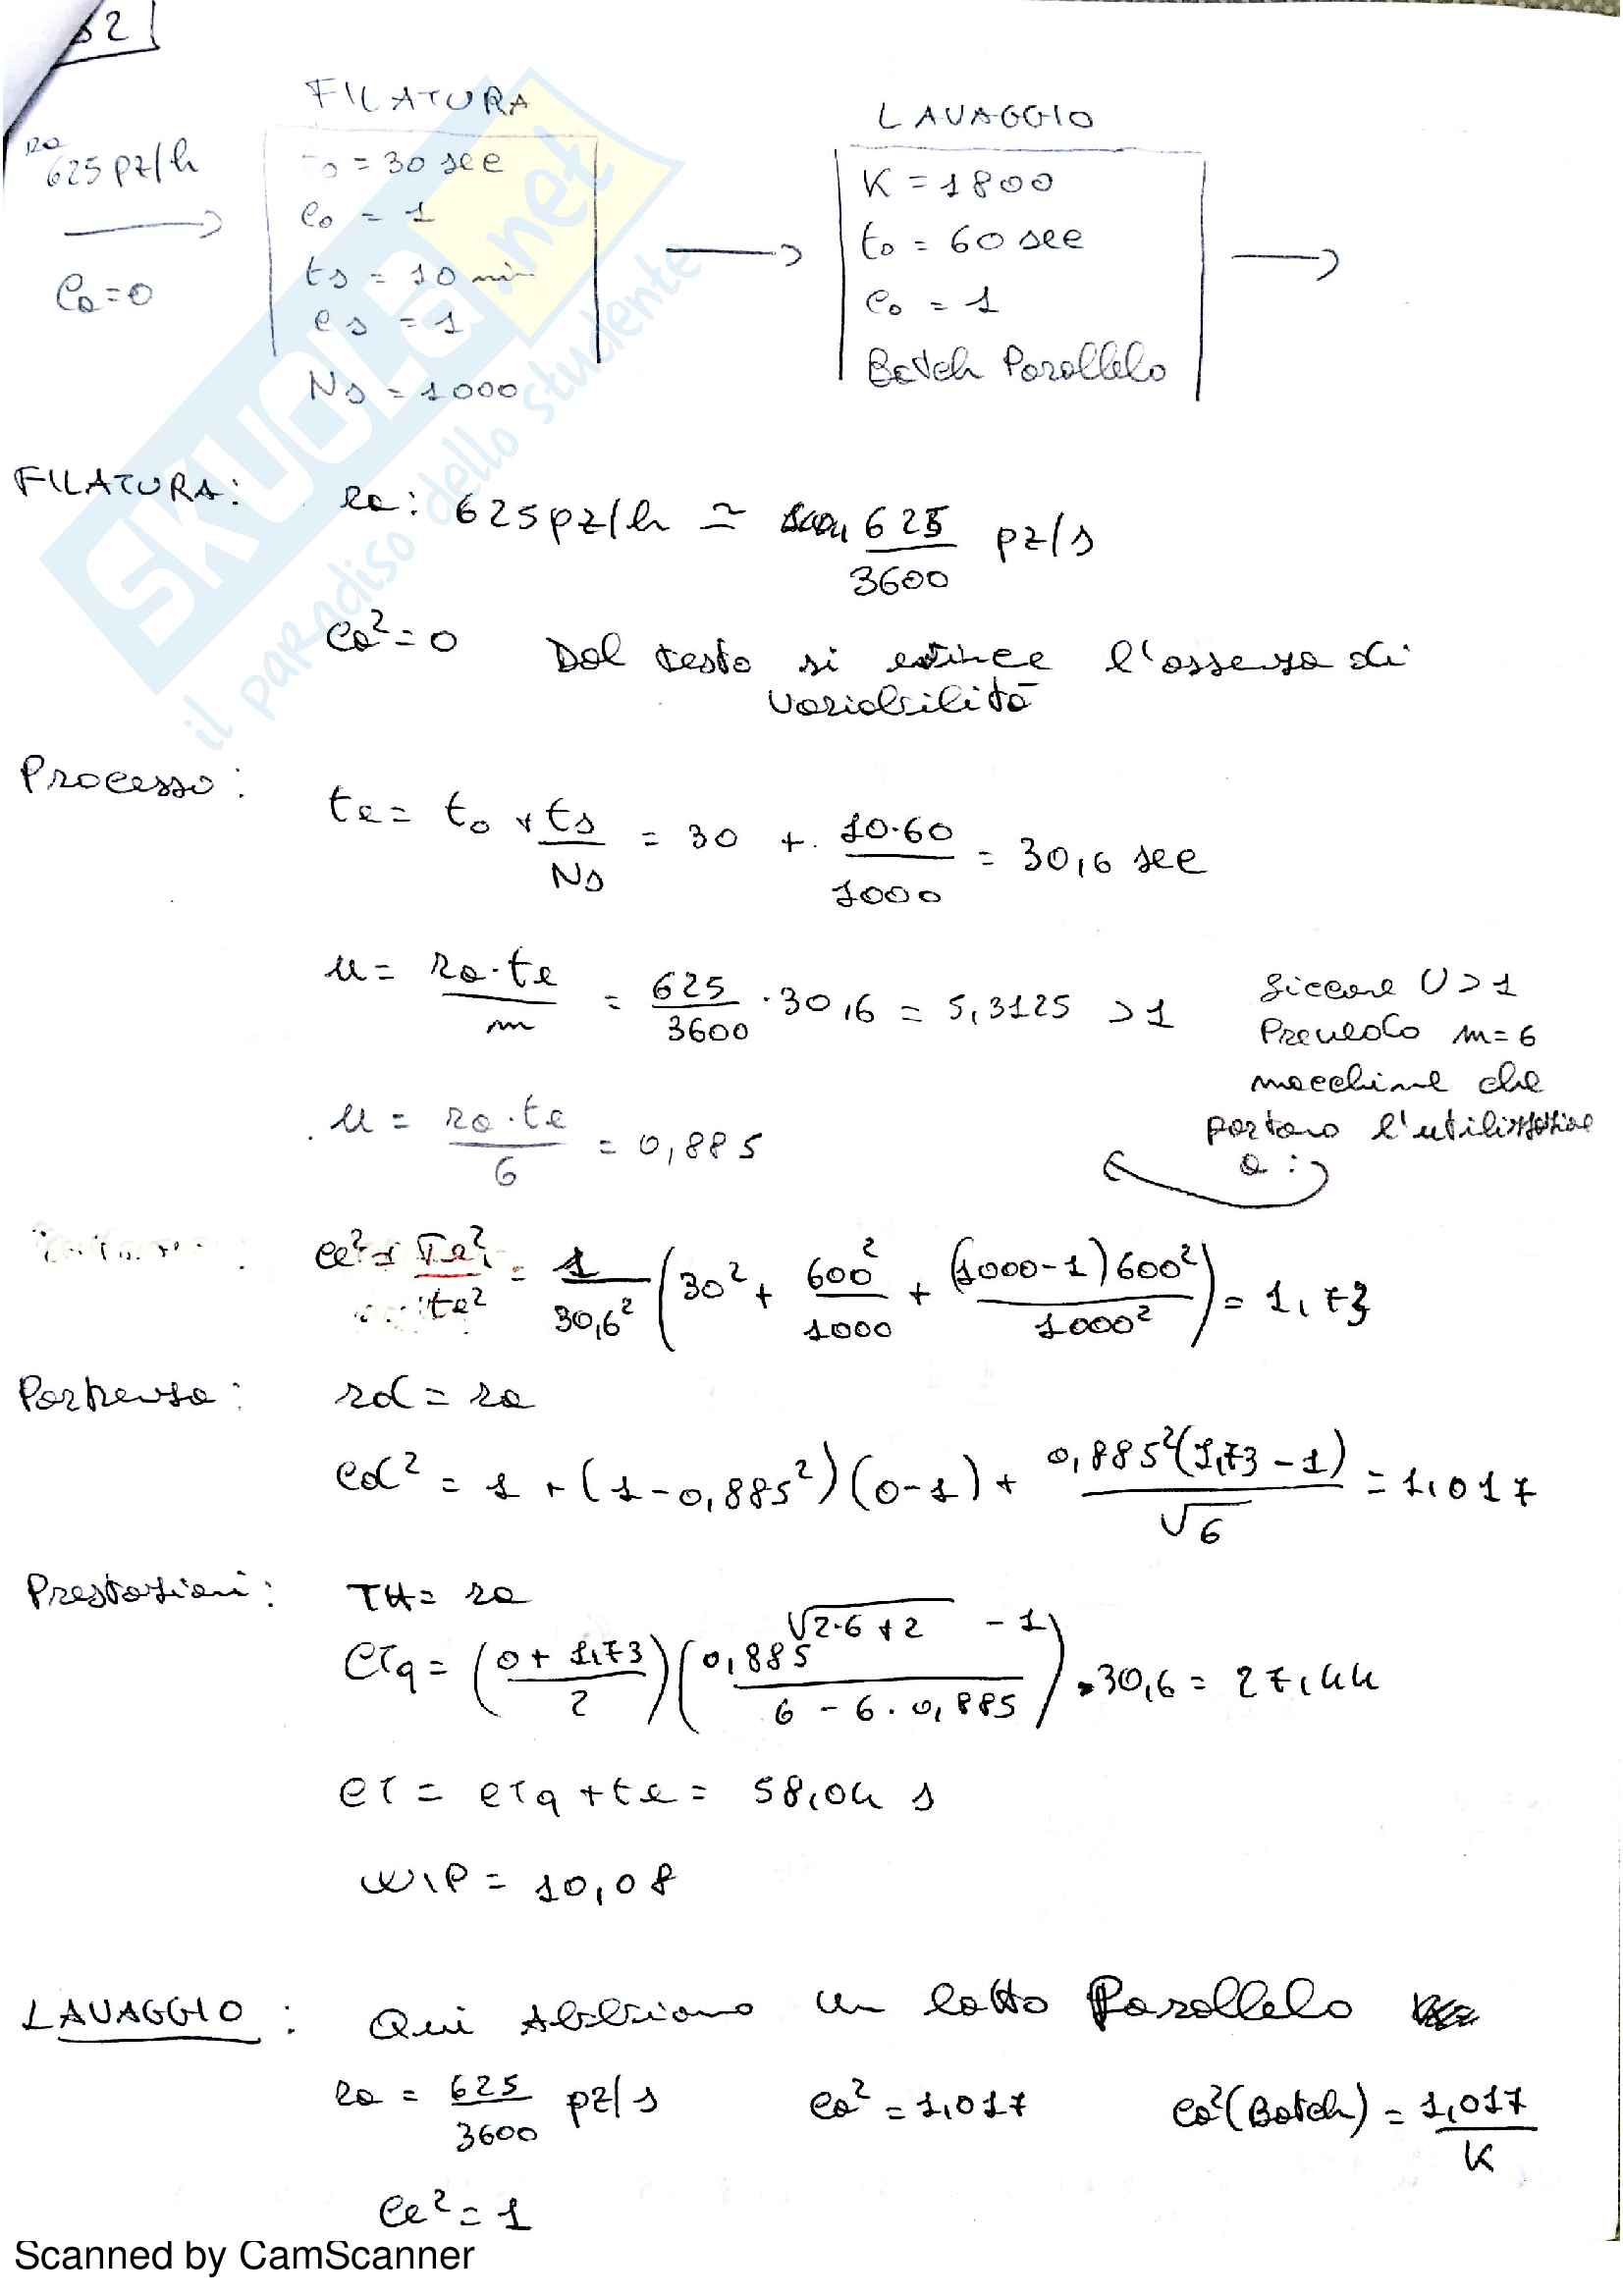 32
FILATURA
LAVAGGIO
ra
625 pz/h
Ca=0
to = 30 sec
Co = 1
ts = 10 min
Cs = 1
Ns = 1000
K = 1800
to = 60 sec
Co = 1
Batch Parallelo
SKUOLA.net
il paradiso dello studente
FILATURA: ra: 625 pz/h ≃ 625/3600 pz/s
Ca²=0 Dal testo si evince l'assenza di
variabilità
Processo: te = to + ts/Ns = 30 + 10·60/1000 = 30,6 sec
u = ra·te/m = 625/3600 · 30,6 = 5,3125 > 1
Siccome U>1
Prevedo m=6
macchine che
portano l'utilizzazione
a :
u = ra·te/6 = 0,885
Ce² = σe²/te² = 1/30,6² (30² + 600²/1000 + (1000-1)600²/1000²) = 1,73
Partenza: rd = ra
Cd² = 1 + (1-0,885²)(0-1) + 0,885²(1,73-1)/√6 = 1,017
Prestazioni: TH = ra
CTq = ((0+1,73)/2)(0,885^(√(2·6+2) -1)/(6-6·0,885))·30,6 = 27,44
CT = CTq + te = 58,04 s
WIP = 10,08
LAVAGGIO: Qui Abbiamo un lotto Parallelo
ra = 625/3600 pz/s Ca² = 1,017 Ca²(Batch) = 1,017/K
Ce² = 1
Scanned by CamScanner